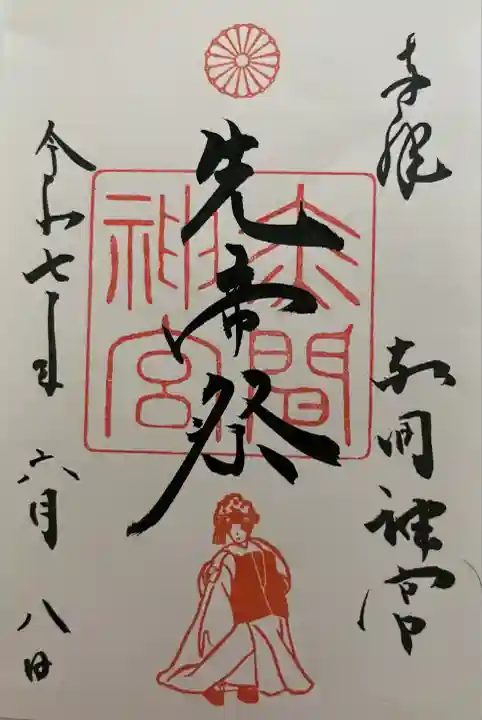 奉拝
赤間神宮
先帝祭
赤間
神宮
令和七年 六月 八日